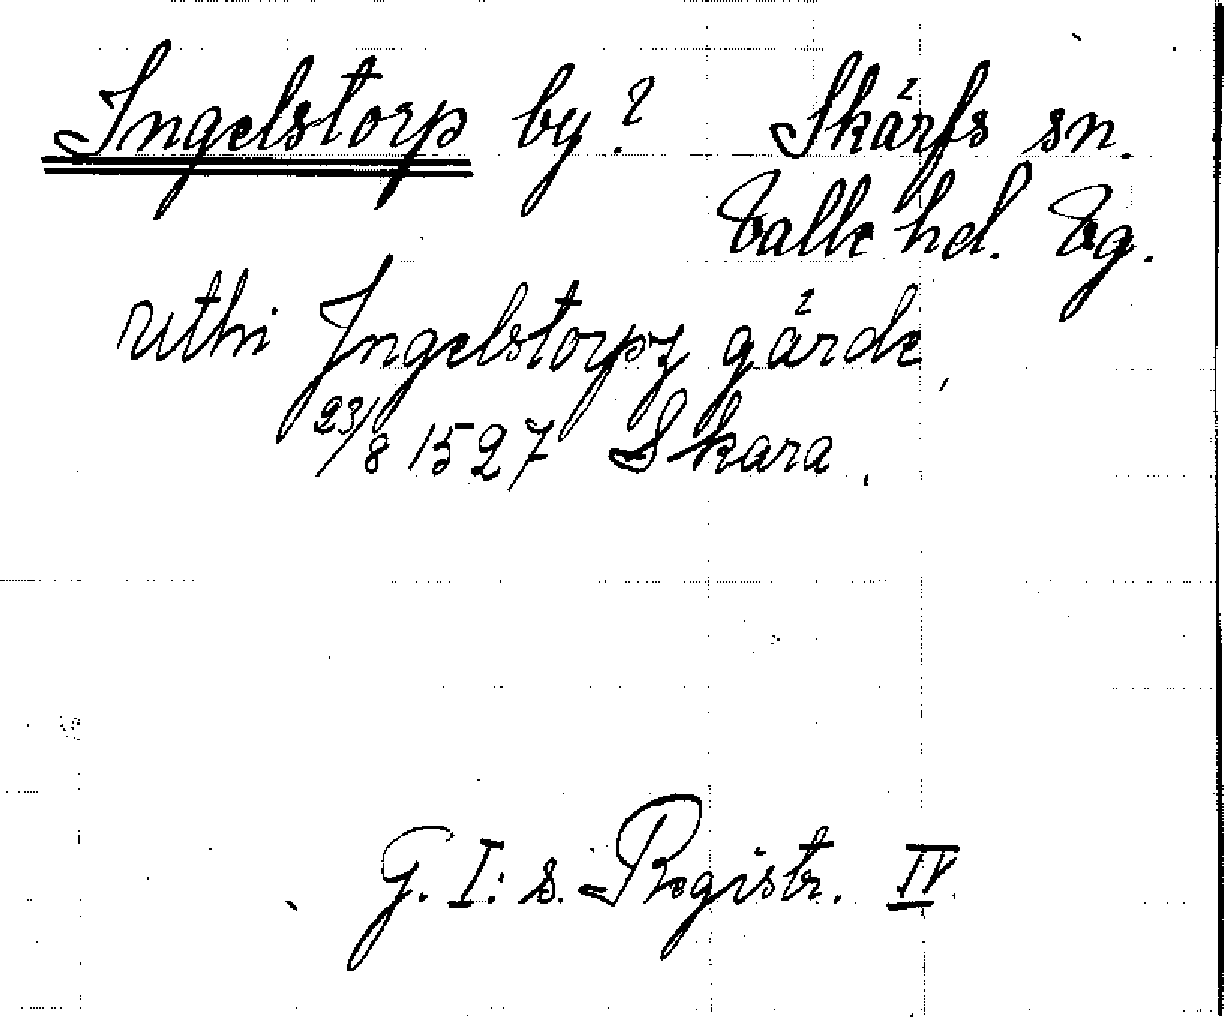 Ingelstorp by? Skärfs sn.
Valle hd. Vg.
uthi Jngelstorpz gärde,
23/8 1527 Skara.
G. I:s. Registr. IV